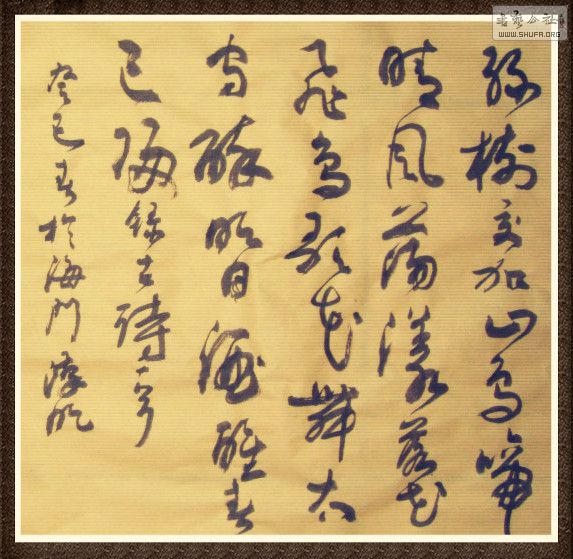 绿树交加山鸟啼
晴风荡漾落花
飞鸟歌花舞太
守醉明日酒醒春
已归录古诗一首
癸巳春於海门
书艺公社
WWW.SHUFA.ORG